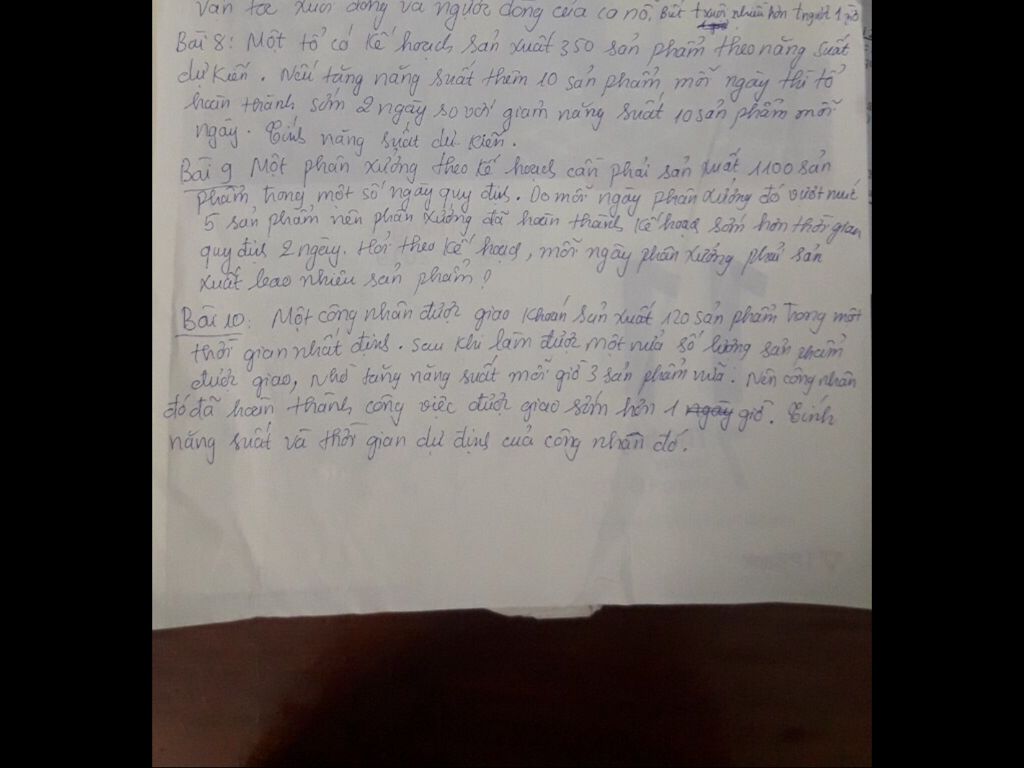 vận tốc xuôi dòng và ngược dòng của ca nô, Biết t xuôi nhiều hơn t ngược 1 giờ
Bài 8: Một tổ có kế hoạch sản xuất 350 sản phẩm theo năng suất
dự kiến. Nếu tăng năng suất thêm 10 sản phẩm mỗi ngày thì tổ
hoàn thành sớm 2 ngày so với giảm năng suất 10 sản phẩm mỗi
ngày. Tính năng suất dự kiến.
Bài 9 Một phân xưởng theo kế hoạch cần phải sản xuất 1100 sản
phẩm trong một số ngày quy định. Do mỗi ngày phân xưởng đó vượt mức
5 sản phẩm nên phân xưởng đã hoàn thành kế hoạch sớm hơn thời gian
quy định 2 ngày. Hỏi theo kế hoạch, mỗi ngày phân xưởng phải sản
xuất bao nhiêu sản phẩm?
Bài 10: Một công nhân được giao khoán sản xuất 120 sản phẩm trong một
thời gian nhất định. Sau khi làm được một nửa số lượng sản phẩm
được giao, nhờ tăng năng suất mỗi giờ 3 sản phẩm nữa. Nên công nhân
đó đã hoàn thành công việc được giao sớm hơn 1 ngày giờ. Tính
năng suất và thời gian dự định của công nhân đó.